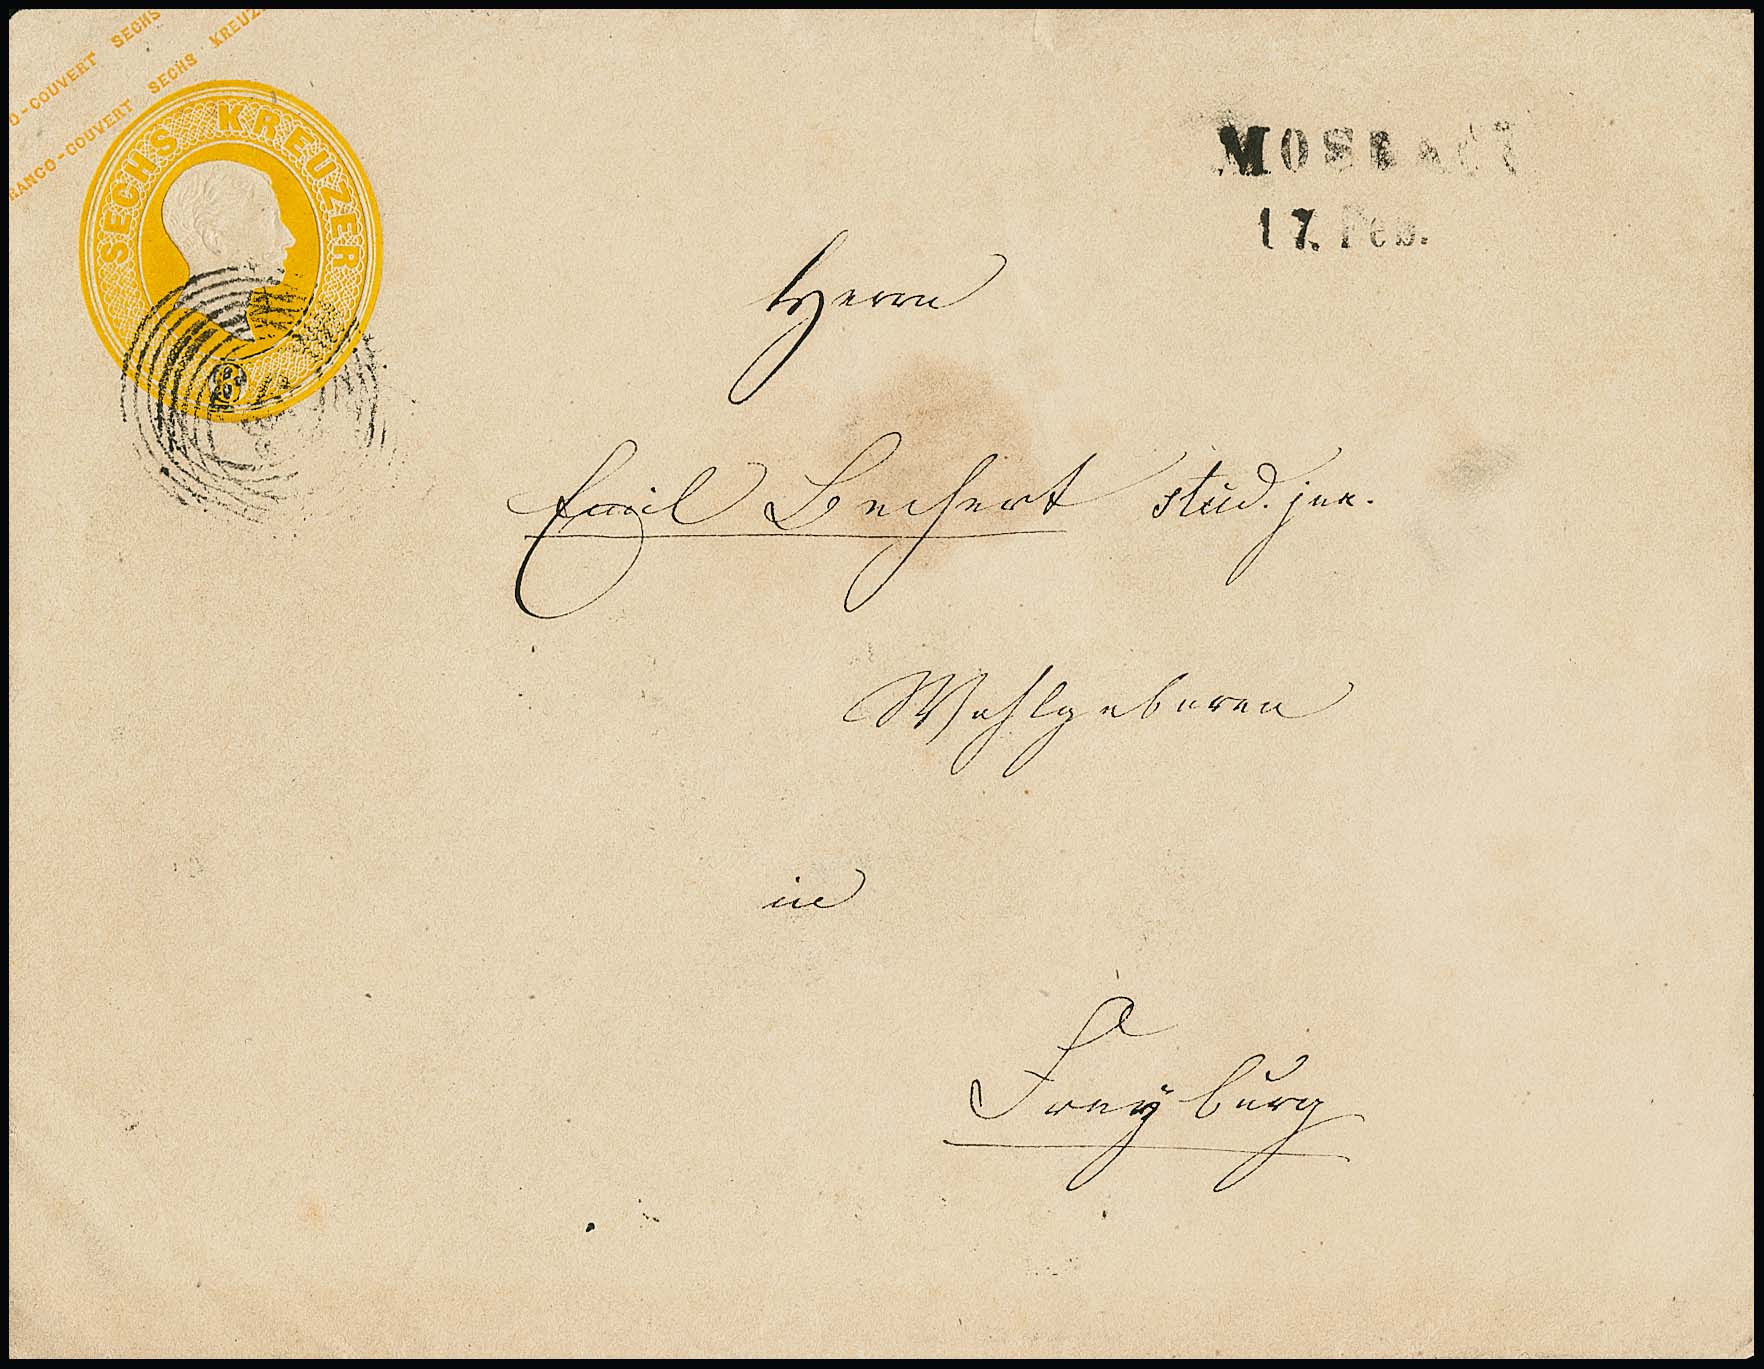 O-COUVERT SECHS
RANCO-COUVERT SECHS KREUZ
SECHS KREUZER
MOSBACH
17. Feb.
Herrn
Emil Bechert stud. jur.
Wohlgeboren
in
Freyburg